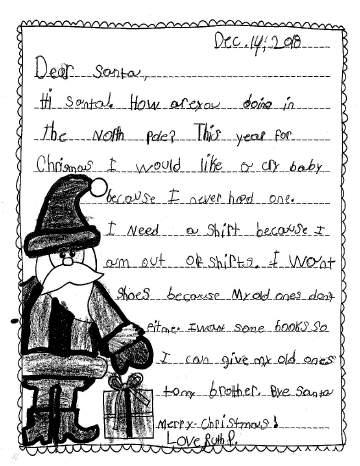 Dec. 14, 2018
Dear Santa,
Hi Santa. How are you doing in
the North pole? This year for
Chrismas I would like a cry baby
because I never had one.
I Need a shirt because I
am out of shirts. I Want
shoes because My old ones dont
fit me. I want some books so
I can give my old ones
to my brother. Bye Santa
Merry-Christmas!
Love, Ruth P.